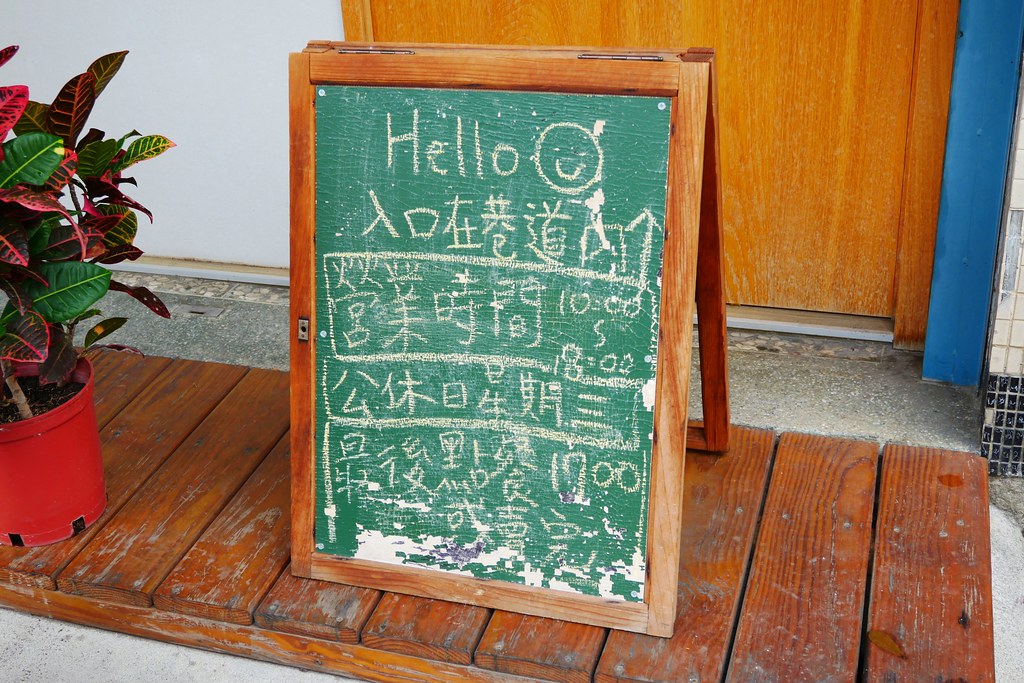 Hello
入口在巷道內
營業時間 10:00
18:00
公休日星期三
最後點餐 17:00
或售完